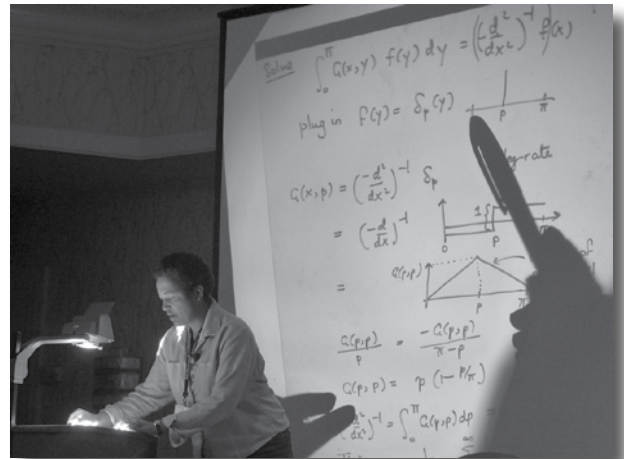 Solve ∫₀^π G(x,y) f(y) dy = ((-d²/dx²)⁻¹ f)(x)
plug in f(y) = δ_p(y)
p π
G(x,p) = (-d²/dx²)⁻¹ δ_p
= (-d/dx)⁻¹
1 {
0 p
=
G(p,p)
p π
G(p,p)/p = -G(p,p)/π-p
G(p,p) = p (1 - p/π)
d²/dx²)⁻¹ = ∫₀^π G(p,p) dp =